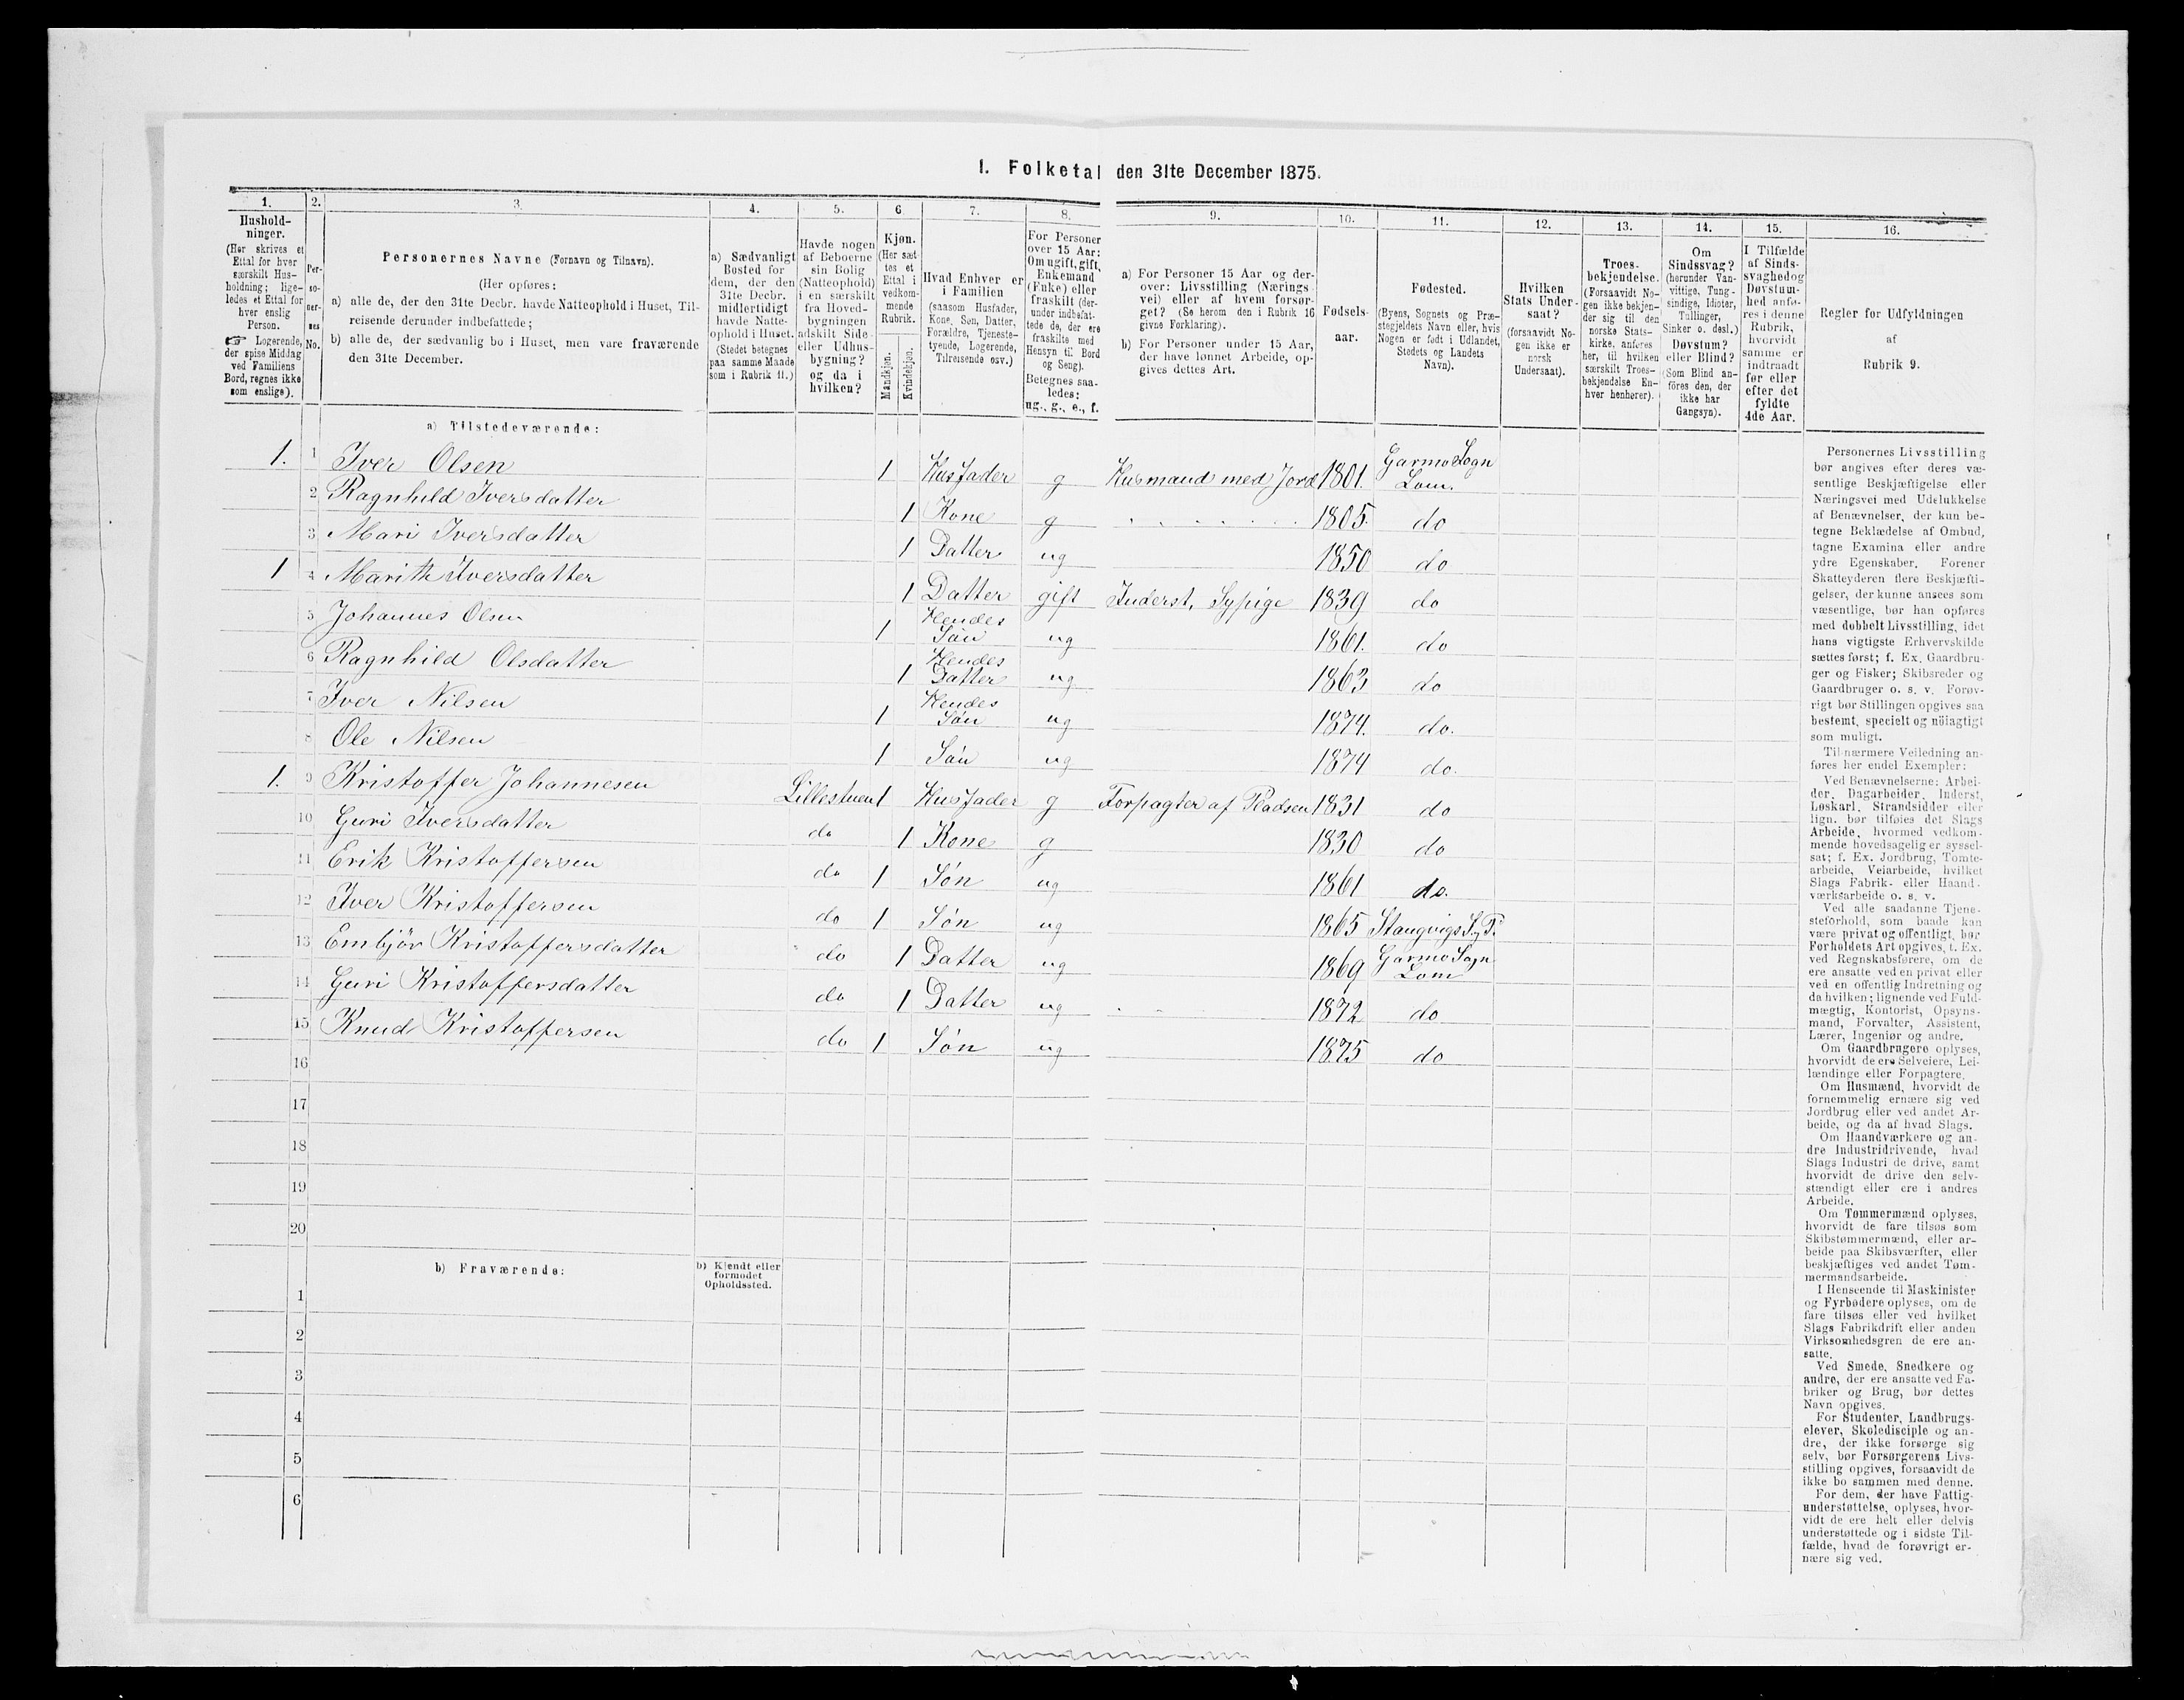 1. Folketal den 31te December 1875.
1.
2.
3.
4.
5.
6
7.
8.
9.
10.
11.
12.
13.
14.
15.
16.
Hushold-
ninger.
(Her skrives et
Ettal for hver
særskilt Hus-
holdning; lige-
ledes et Ettal for
hver enslig
Person.
☞ Logerende,
der spise Middag
ved Familiens
Bord, regnes ikke
som enslige).
Per-
so-
ner-
nes
No.
Personernes Navne (Fornavn og Tilnavn).
(Her opføres:
a) alle de, der den 31te Decbr. havde Natteophold i Huset, Til-
reisende derunder indbefattede;
b) alle de, der sædvanlig bo i Huset, men vare fraværende
den 31te December.
a) Sædvanligt
Bosted for
dem, der den
31te Decbr.
midlertidigt
havde Natte-
ophold i Huset.
(Stedet betegnes
paa samme Maade
som i Rubrik 11.)
Havde nogen
af Beboerne
sin Bolig
(Natteophold)
i en særskilt
fra Hoved-
bygningen
adskilt Side-
eller Udhus-
bygning?
og da i
hvilken?
Kjøn.
(Her sæt-
tes et
Ettal i
vedkom-
mende
Rubrik.
Mandkjøn.
Kvindekjøn.
Hvad Enhver er
i Familien
(saasom Husfader,
Kone, Søn, Datter,
Forældre, Tjeneste-
tyende, Logerende,
Tilreisende osv.)
For Personer
over 15 Aar:
Om ugift, gift,
Enkemand
(Enke) eller
fraskilt (der-
under indbefat-
tede de, der ere
fraskilte med
Hensyn til Bord
og Seng).
Betegnes saa-
ledes:
ug., g., e., f.
a) For Personer 15 Aar og der-
over: Livsstilling (Nærings-
vei) eller af hvem forsør-
get? (Se herom den i Rubrik 16
givne Forklaring).
b) For Personer under 15 Aar,
der have lønnet Arbeide, op-
gives dettes Art.
Fødsels-
aar.
Fødested.
(Byens, Sognets og Præ-
stegjeldets Navn eller, hvis
Nogen er født i Udlandet,
Stedets og Landets
Navn).
Hvilken
Stats Under-
saat?
(forsaavidt No-
gen ikke er
norsk
Undersaat).
Troes-
bekjendelse.
(Forsaavidt No-
gen ikke bekjen-
der sig til den
norske Stats-
kirke, anføres
her, til hvilken
særskilt Troes-
bekjendelse En-
hver henhører).
Om
Sindssvag?
(herunder Van-
vittige, Tung-
sindige, Idioter,
Tullinger,
Sinker o. desl.)
Døvstum?
eller Blind?
(Som Blind an-
føres den, der
ikke har
Gangsyn).
I Tilfælde
af Sinds-
svaghed og
Døvstum-
hed anfø-
res i denne
Rubrik,
hvorvidt
samme er
indtraadt
før eller
efter det
fyldte
4de Aar.
Regler for Udfyldningen
af
Rubrik 9.
a) Tilstedeværende:
1. 1 Iver Olsen 1 Husfader g Husmand med Jord 1801. Garmo Sogn Lom.
2 Ragnhild Iversdatter 1 Kone g 1805. do
3 Mari Iversdatter 1 Datter ug 1850 do
1 4 Marith Iversdatter 1 Datter gift Inderst, Sypige 1839 do
5 Johannes Olsen 1 Hendes Søn ug 1861. do
6 Ragnhild Olsdatter 1 Hendes Datter ug 1863 do
7 Iver Nilsen 1 Hendes Søn ug 1874. do.
8 Ole Nilsen 1 Søn ug 1874 do.
1. 9 Kristoffer Johannesen Lillestuen 1 Husfader g Forpagter af Pladsen 1831 do
10 Guri Iversdatter do 1 Kone g 1830 do
11 Erik Kristoffersen do 1 Søn ug 1861 do.
12 Iver Kristoffersen do 1 Søn ug 1865 Stangvigs S. P.
13 Embjör Kristoffersdatter do 1 Datter ug 1869 Garmo Sogn Lom
14 Guri Kristoffersdatter do 1 Datter ug 1872 do
15 Knud Kristoffersen do 1 Søn ug 1875 do
16
17
18
19
20
b) Fraværende:
b) Kjendt eller
formodet
Opholdssted.
1
2
3
4
5
6
Personernes Livsstilling
bør angives efter deres væ-
sentlige Beskjæftigelse eller
Næringsvei med Udelukkelse
af Benævnelser, der kun be-
tegne Beklædelse af Ombud,
tagne Examina eller andre
ydre Egenskaber. Forener
Skatteyderen flere Beskjæfti-
gelser, der kunne ansees som
væsentlige, bør han opføres
med dobbelt Livsstilling, idet
hans vigtigste Erhvervskilde
sættes først; f. Ex. Gaardbru-
ger og Fisker; Skibsreder og
Gaardbruger o. s. v. Forøv-
rigt bør Stillingen opgives saa
bestemt, specielt og nöiagtigt
som muligt.
Til nærmere Veiledning an-
føres her endel Exempler:
Ved Benævnelserne: Arbei-
der, Dagarbeider, Inderst,
Løskarl, Strandsidder eller
lign. bør tilføies det Slags
Arbeide, hvormed vedkom-
mende hovedsagelig er syssel-
sat; f. Ex. Jordbrug, Tomte-
arbeide, Veiarbeide, hvilket
Slags Fabrik- eller Haand-
værksarbeide o. s. v.
Ved alle saadanne Tjene-
steforhold, som baade kan
være privat og offentligt, bør
Forholdets Art opgives, t. Ex.
ved Regnskabsførere, om de
ere ansatte ved en privat eller
ved en offentlig Indretning og
da hvilken; lignende ved Fuld-
mægtig, Kontorist, Opsyns-
mand, Forvalter, Assistent,
Lærer, Ingeniør og andre.
Om Gaardbrugere oplyses,
hvorvidt de ere Selveiere, Lei-
lændinge eller Forpagtere.
Om Husmænd, hvorvidt de
fornemmelig ernære sig ved
Jordbrug eller ved andet Ar-
beide, og da af hvad Slags.
Om Haandværkere og an-
dre Industridrivende, hvad
Slags Industri de drive, samt
hvorvidt de drive den selv-
stændigt eller ere i andres
Arbeide.
Om Tømmermænd oplyses,
hvorvidt de fare tilsøs som
Skibstømmermænd, eller ar-
beide paa Skibsværfter, eller
beskjæftiges ved andet Tøm-
mermandsarbeide.
I Henseende til Maskinister
og Fyrbødere oplyses, om de
fare tilsøs eller ved hvilket
Slags Fabrikdrift eller anden
Virksomhedsgren de ere an-
satte.
Ved Smede, Snedkere og
andre, der ere ansatte ved Fa-
briker og Brug, bør dettes
Navn opgives.
For Studenter, Landbrugs-
elever, Skoledisciple og an-
dre, der ikke forsørge sig
selv, bør Forsørgerens Livs-
stilling opgives, forsaavidt de
ikke bo sammen med denne.
For dem, der have Fattig-
understøttelse, oplyses, hvor-
vidt de ere helt eller delvis
understøttede og i sidste Til-
fælde, hvad de forøvrigt er-
nære sig ved.